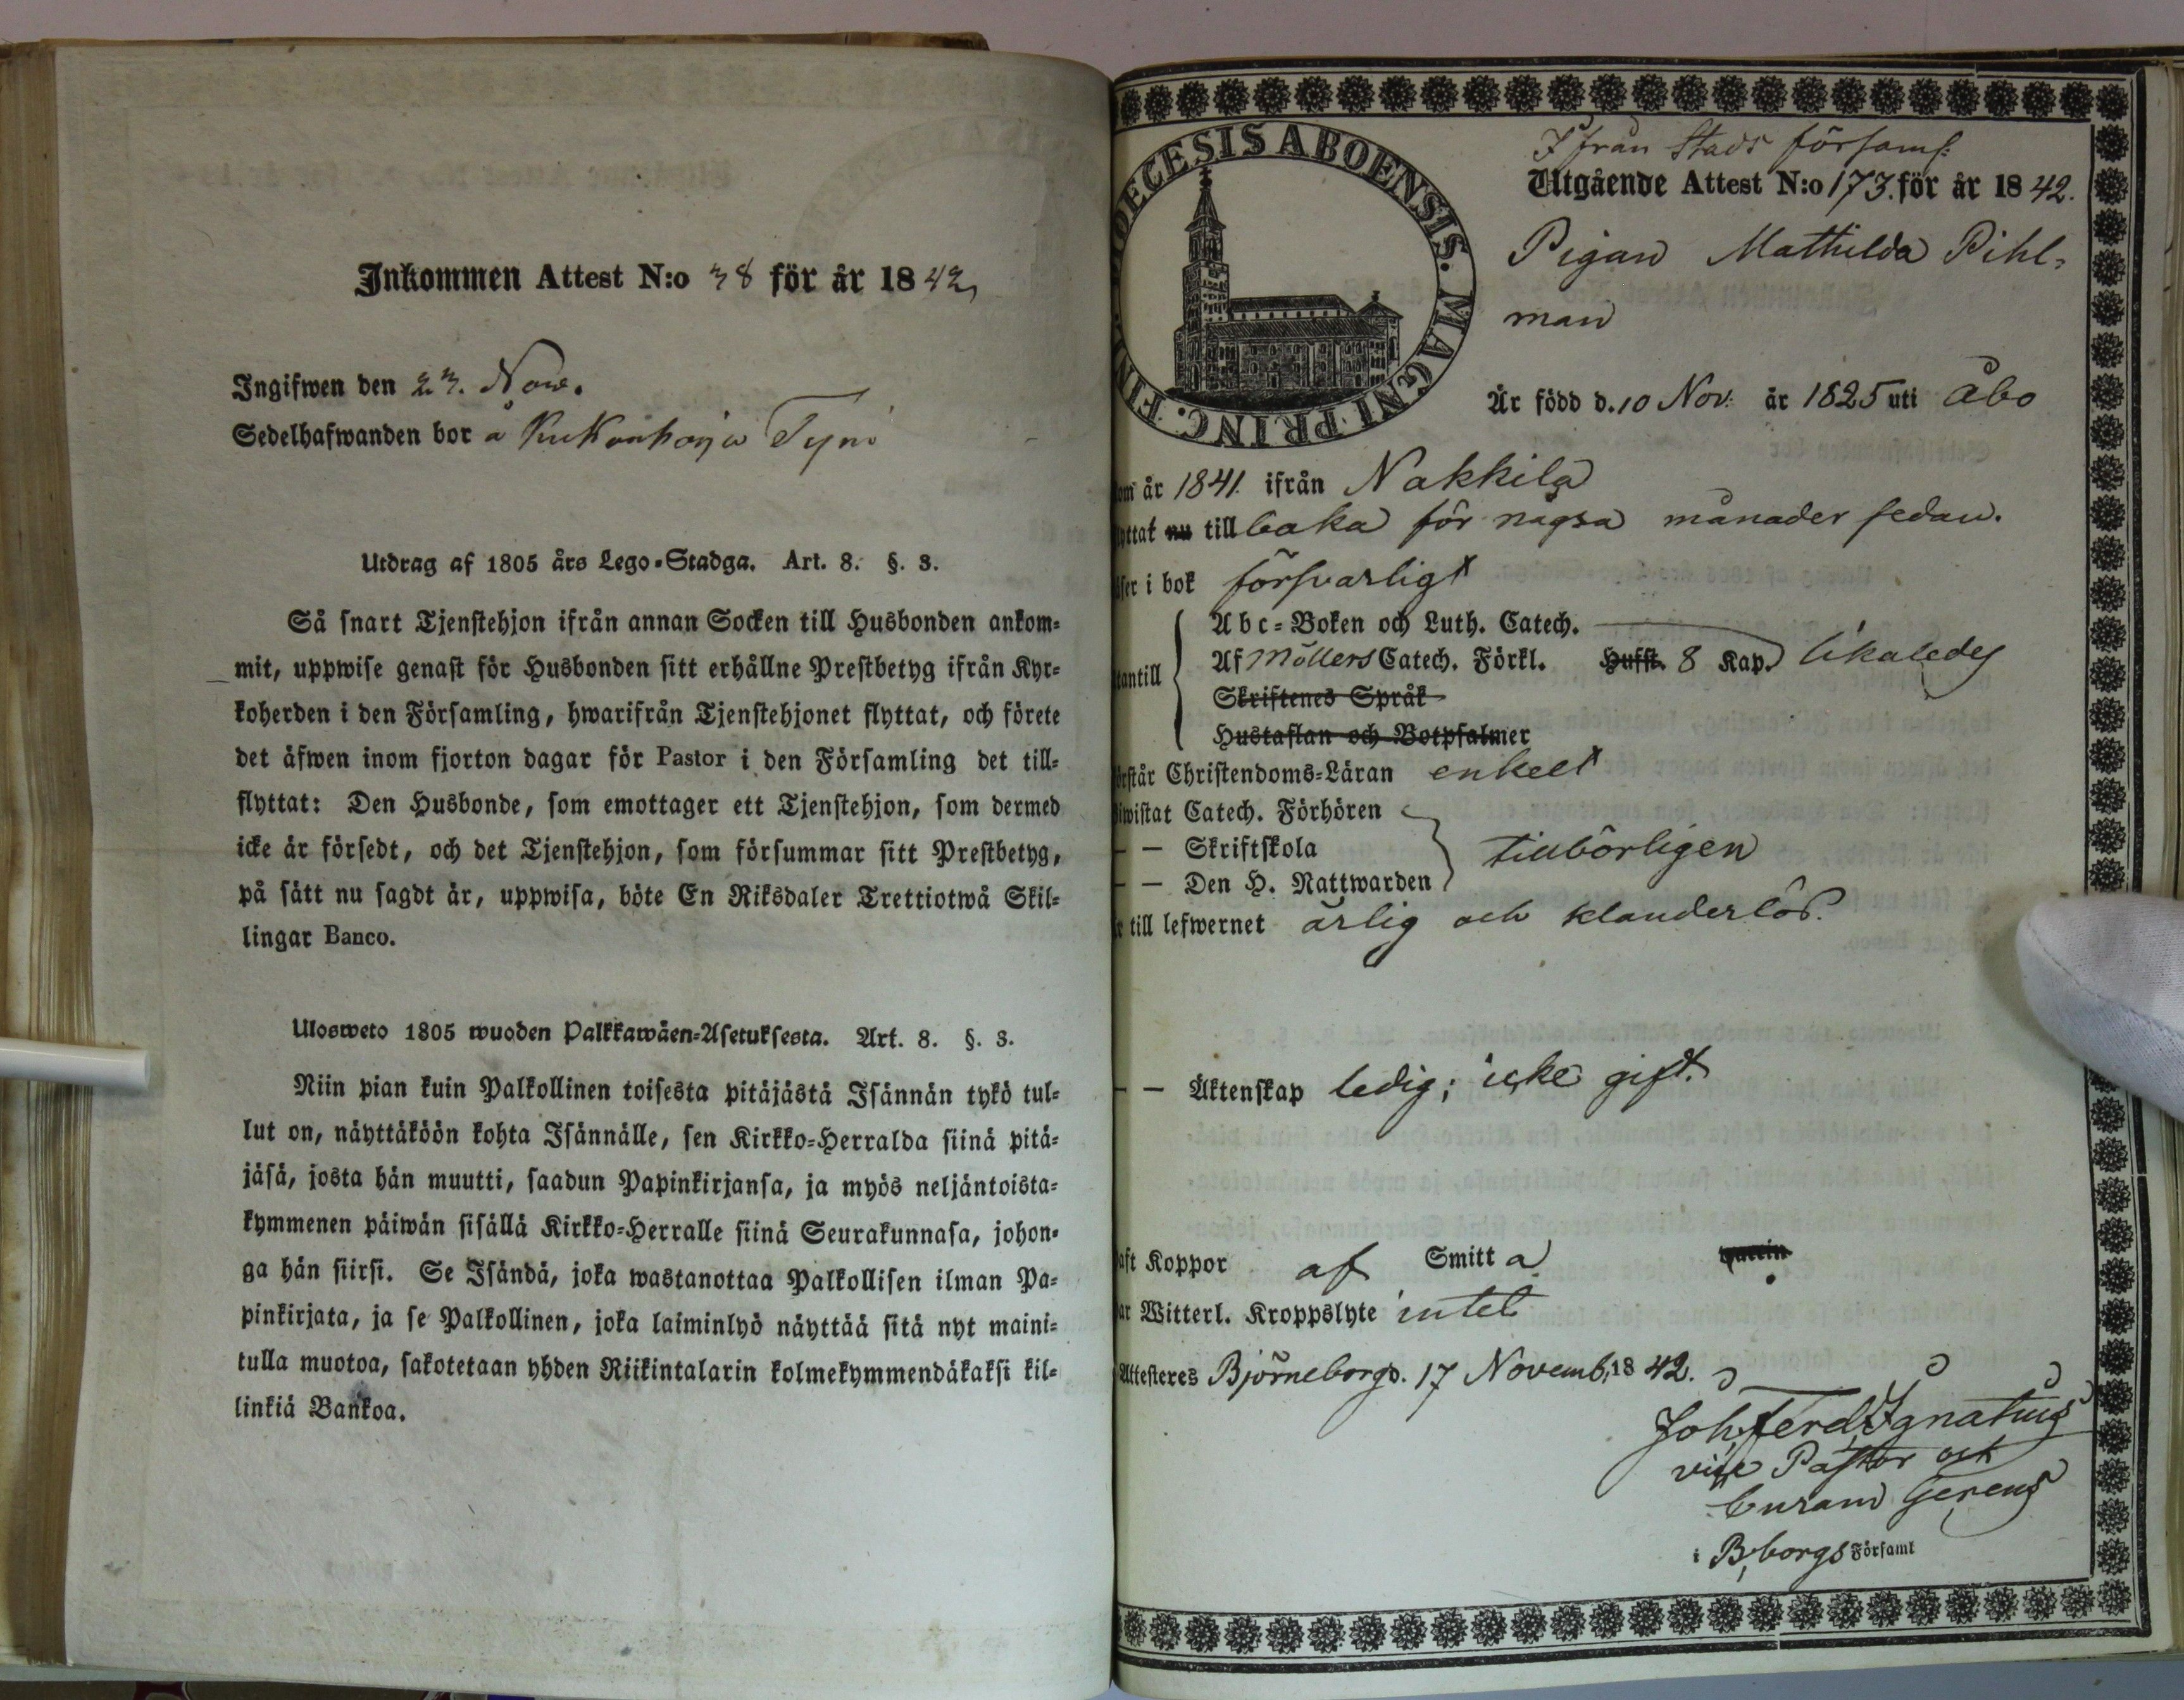 Inkommen Attest N:o 38 för år 1842
Ingifwen den 23. Nov.
Sedelhafwanden bor å Kukonharja Tyni
Utdrag af 1805 års Lego-Stadga. Art. 8. §. 3.
Så snart Tjenstehjon ifrån annan Socken till Husbonden ankom-
mit, uppwise genast för Husbonden sitt erhållne Prestbetyg ifrån Kyr-
koherden i den Församling, hwarifrån Tjenstehjonet flyttat, och förete
det äfwen inom fjorton dagar för Pastor i den Församling det till-
flyttat: Den Husbonde, som emottager ett Tjenstehjon, som dermed
icke är försedt, och det Tjenstehjon, som försummar sitt Prestbetyg,
på sätt nu sagdt är, uppwisa, böte En Riksdaler Trettiotwå Skil-
lingar Banco.
Ulosweto 1805 wuoden Palkkawäen-Asetuksesta. Art. 8. §. 3.
Niin pian kuin Palkollinen toisesta pitäjästä Isännän tykö tul-
lut on, näyttäköön kohta Isännälle, sen Kirkko-Herralda siinä pitä-
jäsä, josta hän muutti, saadun Papinkirjansa, ja myös neljäntoista-
kymmenen päiwän sisällä Kirkko-Herralle siinä Seurakunnasa, johon-
ga hän siirsi. Se Isändä, joka wastanottaa Palkollisen ilman Pa-
pinkirjata, ja se Palkollinen, joka laiminlyö näyttää sitä nyt maini-
tulla muotoa, sakotetaan yhden Riikintalarin kolmekymmendäkaksi kil-
linkiä Bankoa.
DIOECESIS ABOENSIS. MAGNI PRINC. FIN
Ifrån Stads församl:
Utgående Attest N:o 173. för år 1842.
Pigan Mathilda Pihl-
man
Är född d. 10 Nov. år 1825 uti Åbo
om år 1841. ifrån Nakkila
yttat nu till baka för några månader sedan.
äser i bok försvarligt
Abc-Boken och Luth. Catech.
tantill Af Möllers Catech. Förkl. Hufst. 8 Kap. likaledes
Skriftenes Språk
Hustaflan och Botpsalmer
örstår Christendoms-Läran enkelt
iwistat Catech. Förhören
— — Skriftskola tillbörligen
— — Den H. Nattwarden
r till lefwernet ärlig och klanderlös.
— — Äktenskap ledig; icke gift.
aft Koppor af Smitta
ar Witterl. Kroppslyte intet
Attesteres Björneborg d. 17 Novemb. 1842.
Joh. Ferd. Ignatius
vice Pastor och
Curam Gerens
i B,borgs Församl